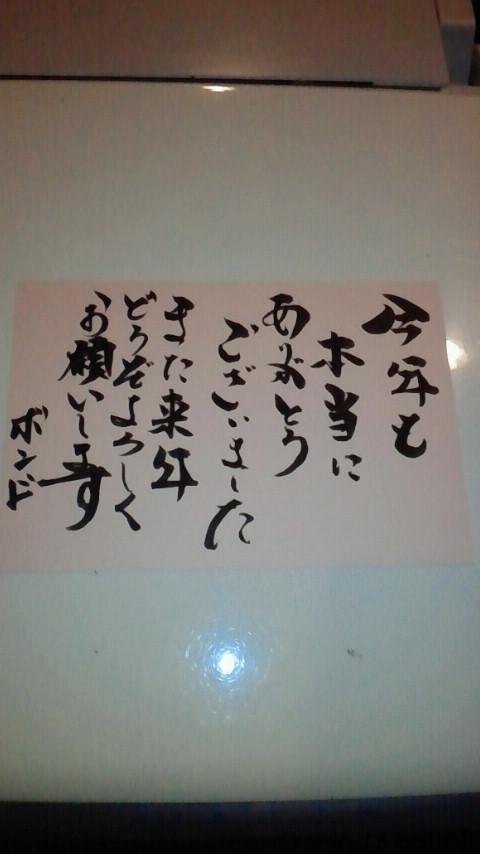 今年も
本当に
ありがとう
ございました
また来年
どうぞよろしく
お願いします
ボンド